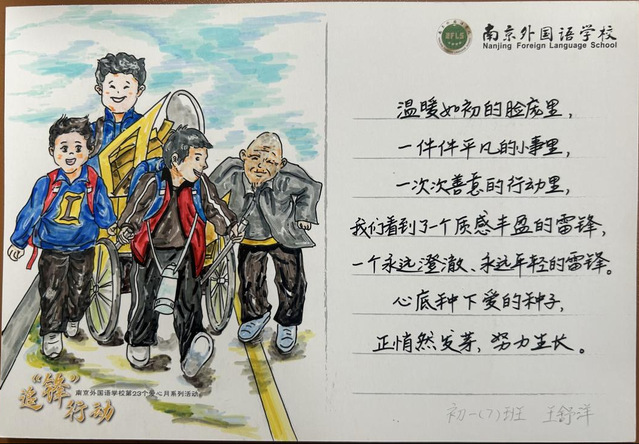 南京外国语学校
Nanjing Foreign Language School
温暖如初的脸庞里，
一件件平凡的小事里，
一次次善意的行动里，
我们看到了一个质感丰盈的雷锋，
一个永远澄澈、永远年轻的雷锋。
心底种下爱的种子，
正悄然发芽，努力生长。
初一(7)班 王舒洋
追“锋”
行动
南京外国语学校第23个爱心月系列活动